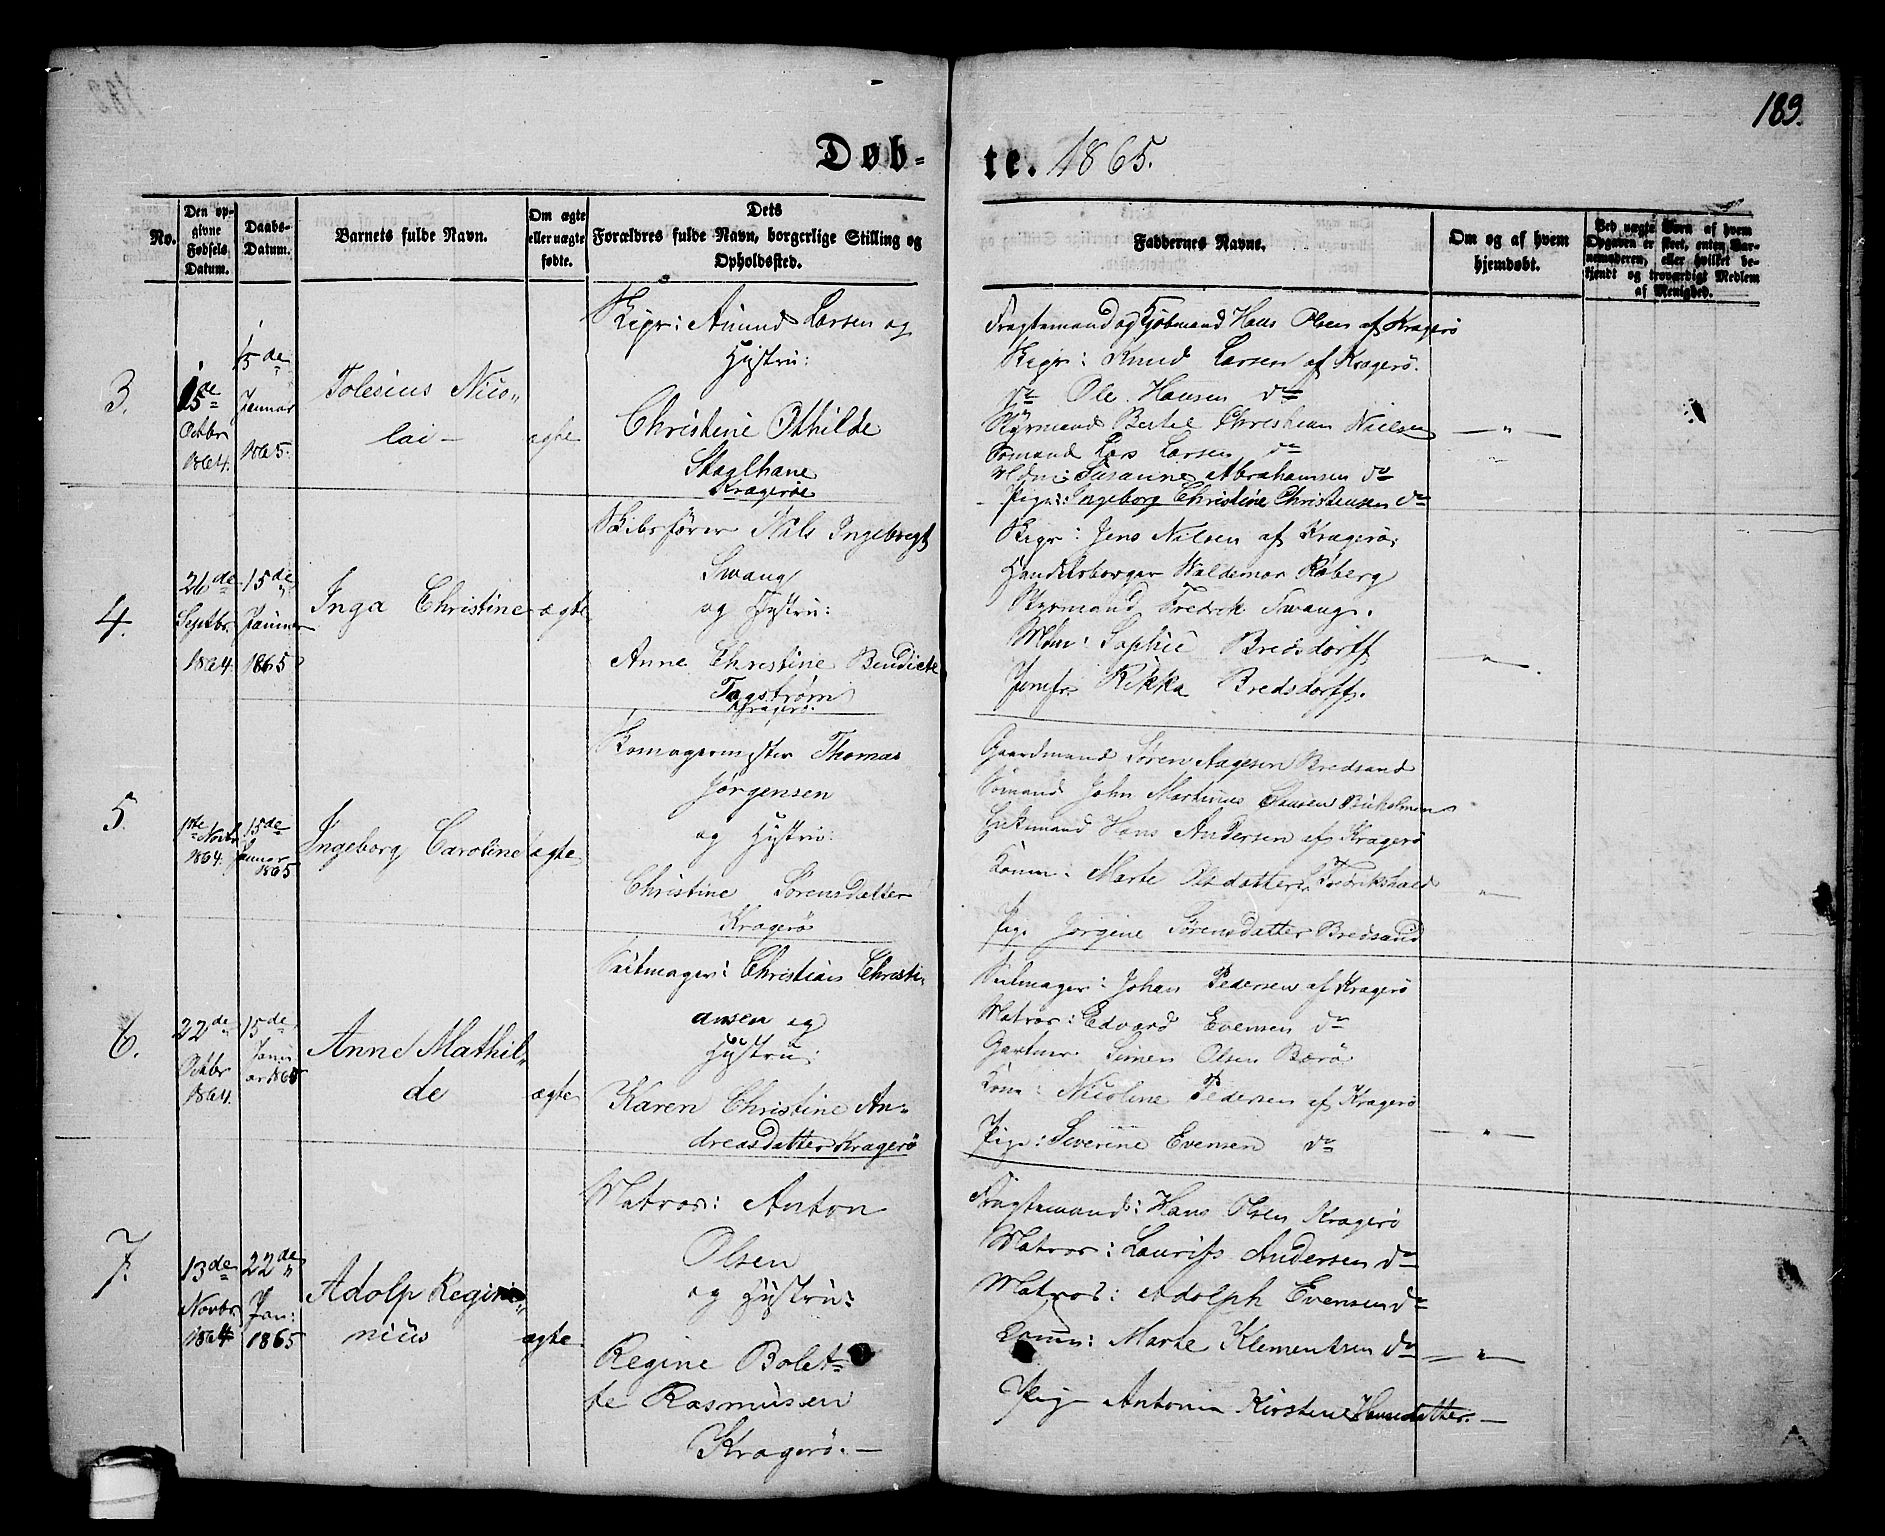 183.
Døb-
te. 1865.
No.
Den op-
givne
Fødsels
Datum.
Daabs-
Datum.
Barnets fulde Navn.
Om ægte
eller uægte
født.
Dets
Forældres fulde Navn, borgerlige Stilling og
Opholdssted.
Faddernes Navne.
Om og af hvem
hjemdøbt.
Ved uægte Børn af hvem
Opgaven er skeet, enten Bar-
nemoderen, eller hvilket be-
kjendt og troværdigt Medlem
af Menighed.
3.
15de
Octbr
1864.
15de
Januar
1865.
Tolesius Nico-
lai -
ægte
Skipr: Amund Larsen og
Hustru:
Christine Othilde
Staalhane
Kragerøe
Fragtemand og Kjøbmand Hans Olsen af Kragerø
Skipr: Knud Larsen af Kragerø.
do Ole Hansen do
Styrmand Bertel Christian Nielsen
Sømand Lars Larsen do
Mdm: Susanne Abrahamsen do
Pige: Ingeborg Christine Christensen do
4.
26de
Septbr.
1864
15de
Januar
1865
Inga Christine
ægte
Skibsfører Nils Ingebregt
Swang
og Hustru:
Anne Christine Bendicte
Fagstrøm
Kragerø.
Skipr: Jens Nilsen af Kragerø
Handelsborger Waldemar Røberg
Styrmand Fredrk Swang.
Mdm: Sophie Bredsdorff
Jomfr: Rikka Bredsdorff.
5.
1ste Novbr
1864.
15de
Januar
1865
Ingeborg Caroline
ægte
Skomagermester Thomas
Jørgensen
og Hustru:
Christine Sørensdatter
Kragerø
Gaardmand Søren Aagesen Bredsand
Sømand John Martinus
Hans Andersen af Kragerø
Konen: Marte Olsdatter Fredrikshald
Pige Jørgine Sørensdatter Bredsand
6.
22de
Octbr
1864.
15de
Janu
ar 1865
Anne Mathil-
de
ægte
Seilmager: Christian Christi-
ansen og
Hustru:
Karen Christine An-
dreasdatter Kragerø
Seilmager: Johan Pedersen af Kragerø
Matros: Edvard Evensen do
Gartner Simen Olsen Bærø
Kone: Nicoline Pedersen af Kragerø
Pige: Severine Evensen do
7.
13de
Novbr
1864
22de
Jan:
1865
Adolp Regin
nius
ægte
Matros: Anton
Olsen
og Hustru:
Regine Bolet-
te Rasmussen
Kragerø. -
Fragtemand: Hans Olsen Kragerø
Matros: Laurits Andersen do
Matros: Adolph Evensen do
Konen: Marte Klementsen do
Pige Antonia Kirstine Hansdatter. -